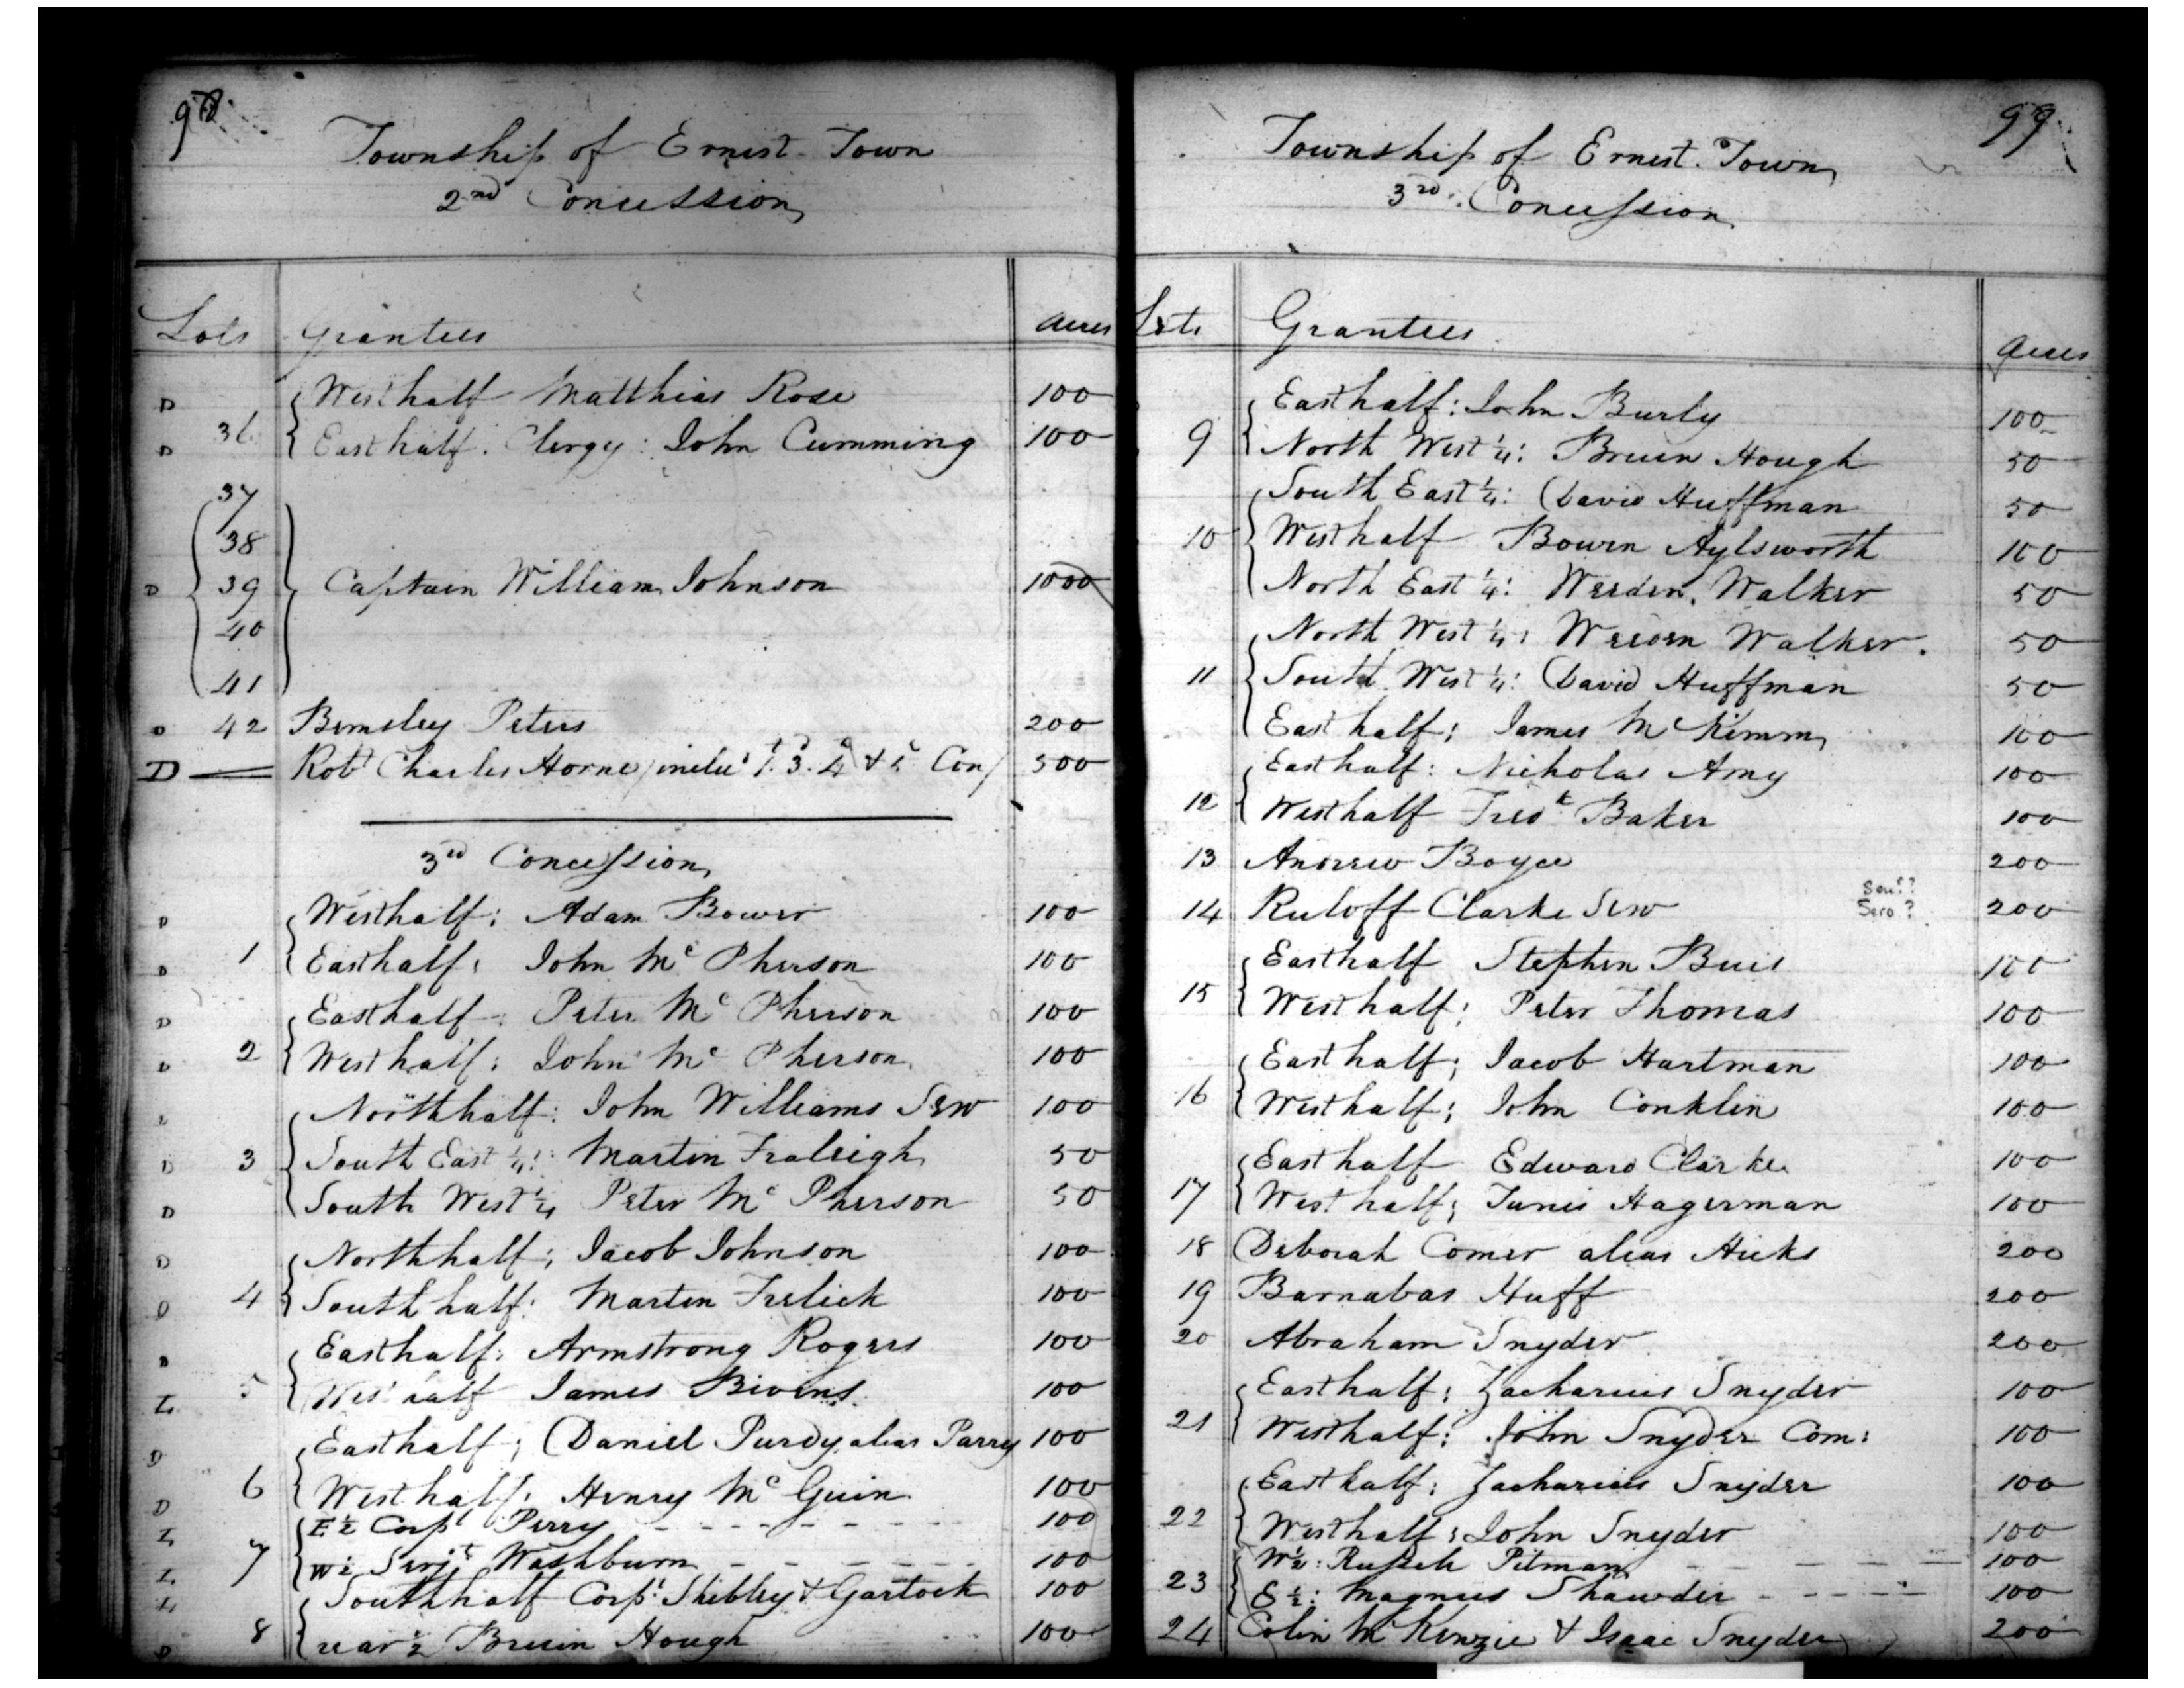 98
Township of Ernest Town
2nd Concession
Lots Grantees Acres
D Westhalf Matthias Rose 100
D 36 Easthalf. Clergy: John Cumming 100
37
38
D 39 Captain William Johnson 1000
40
41
D 42 Bemsley Peters 200
D Robt Charles Horne 1. 3. 4 & 5 Con/ 500
3rd Concession
D Westhalf: Adam Bower 100
D 1 Easthalf: John Mc Pherson 100
D Easthalf: Peter Mc Pherson 100
D 2 Westhalf: John Mc Pherson 100
Northhalf: John Williams Senr 100
D 3 South East 1/4: Martin Fraleigh 50
D South West 1/4 Peter Mc Pherson 50
D Northhalf: Jacob Johnson 100
D 4 Southhalf: Martin Frelick 100
D Easthalf: Armstrong Rogers 100
L 5 Westhalf James Bivens 100
D Easthalf; Daniel Purdy alias Parry 100
D 6 Westhalf: Henry Mc Guin 100
L E 1/2 Corpl Perry 100
L 7 W 1/2 Serjt Washburn 100
L Southhalf Corpl Shibley & Garlock 100
D 8 rear 1/2 Bruin Hough 100
99
Township of Ernest. Town
3rd. Concession
Lots Grantees Acres
Easthalf: John Burly 100
9 North West 1/4: Bruen Hough 50
South East 1/4: David Huffman 50
10 Westhalf Bowen Aylsworth 100
North East 1/4: Weeden Walker 50
North West 1/4: Weeden Walker. 50
11 South West 1/4: David Huffman 50
East half: James Mc Kimm 100
Easthalf: Nicholas Amy 100
12 Westhalf Fredk Baker 100
13 Andrew Boyce 200
Sen??
14 Ruloff Clarke Senr Sero? 200
Easthalf Stephen Buis 100
15 Westhalf: Peter Thomas 100
Easthalf; Jacob Hartman 100
16 Westhalf; John Conklin 100
Easthalf Edward Clarke 100
17 Westhalf; Tunis Hagerman 100
18 Deborah Comer alias Hicks 200
19 Barnabas Huff 200
20 Abraham Snyder 200
Easthalf: Zacharius Snyder 100
21 Westhalf: John Snyder Com: 100
Easthalf: Zacharius Snyder 100
22 Westhalf: John Snyder 100
W 1/2: Russell Pitman 100
23 E 1/2: Magnus Shawder 100
24 Colin Mc Kenzie & Isaac Snyder 200